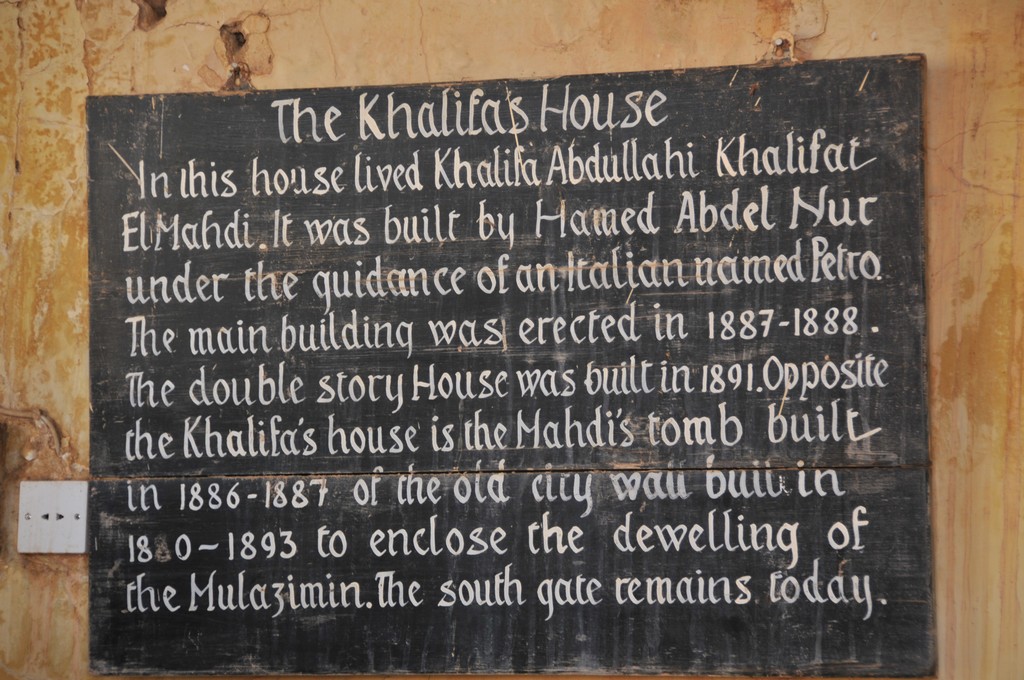 The Khalifa's House
In this house lived Khalifa Abdullahi Khalifat
El Mahdi. It was built by Hamed Abdel Nur
under the guidance of an Italian named Petro.
The main building was erected in 1887-1888.
The double story House was built in 1891. Opposite
the Khalifa's house is the Mahdi's tomb built
in 1886-1887 of the old city wall built in
18 0-1893 to enclose the dewelling of
the Mulazimin. The south gate remains today.